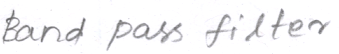 Band pass filter